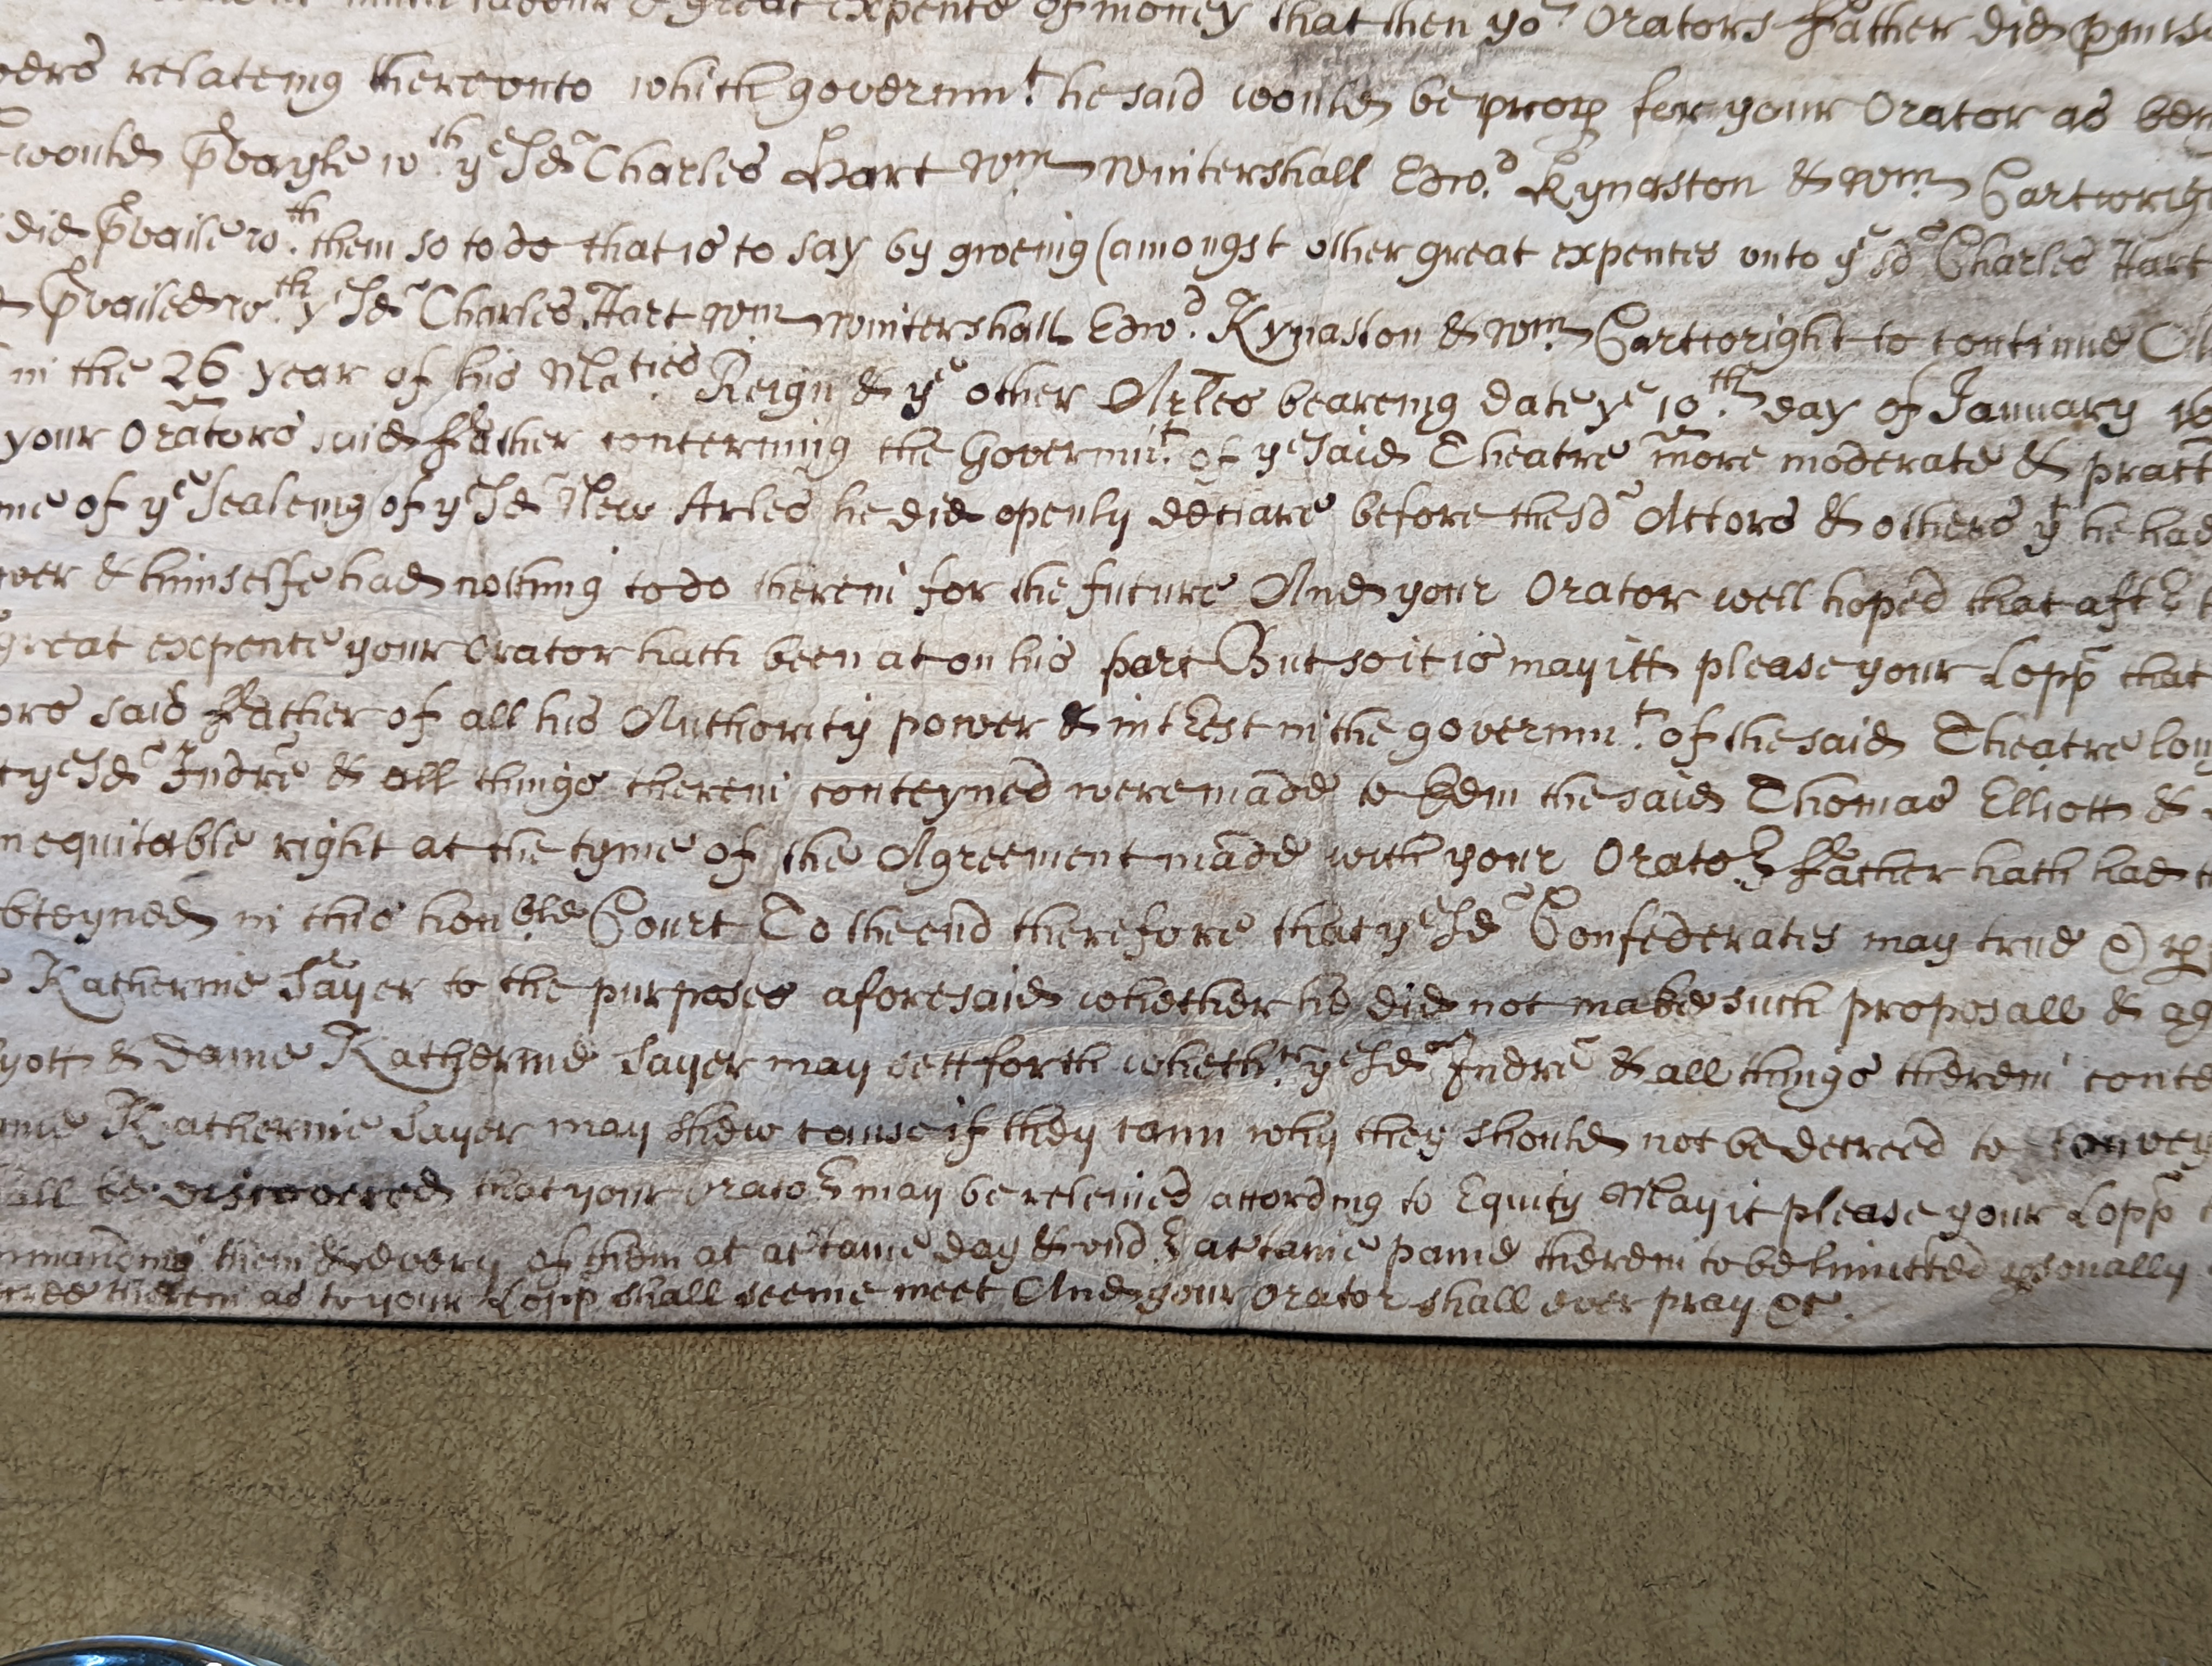 labour & great expence of money that then yor Orators Father did
relateing thereunto which governmt he said would be prop for your Orator as
would pvayle wth ye sd Charles Hart Wm Wintershall Edwd Kynaston & Wm Cartwrigh
did pvaile wth them so to do that is to say by giveing (amongst other great expences unto ye sd Charles Hart
pvailed wth ye sd Charles Hart Wm Wintershall Edwd Kynaston & Wm Cartwright to continue
in the 26 year of his Maties Reign & ye other Arles bearing date ye 10th day of January
your Orators said Father concerning the Governmt of ye said Theatre more moderate &
me of ye sealeing of ye sd New Arles he did openly declare before the sd Actors & others yt he had
& himselfe had nothing to do therein for the future And your Orator well hoped that aftr
great expence your Orator hath been at on his part But so it is may itt please your Lopp that
ors said Father of all his Authority power & intrest in the governmt of the said Theatre
ye sd Indre & all things therein conteyned were made to them the said Thomas Elliott &
equitable right at the tyme of the Agreement made with your Orators Father hath had
bteyned in this honble Court To the end therefore that ye sd Confederates may true
Katherine Sayer to the purposes aforesaid whether he did not make such proposall &
yott & Dame Katherine Sayer may sett forth whethr ye sd Indre & all things therein
Katherine Sayer may shew cause if they cann why they should not be decreed to convey
all be discovered that your Orator may be releived according to Equity May it please your Lopp
them & every of them at a certaine day & undr a certaine paine therein to be limitted psonally
therein as to your Lopp shall seeme meet And your Orator shall ever pray &c.